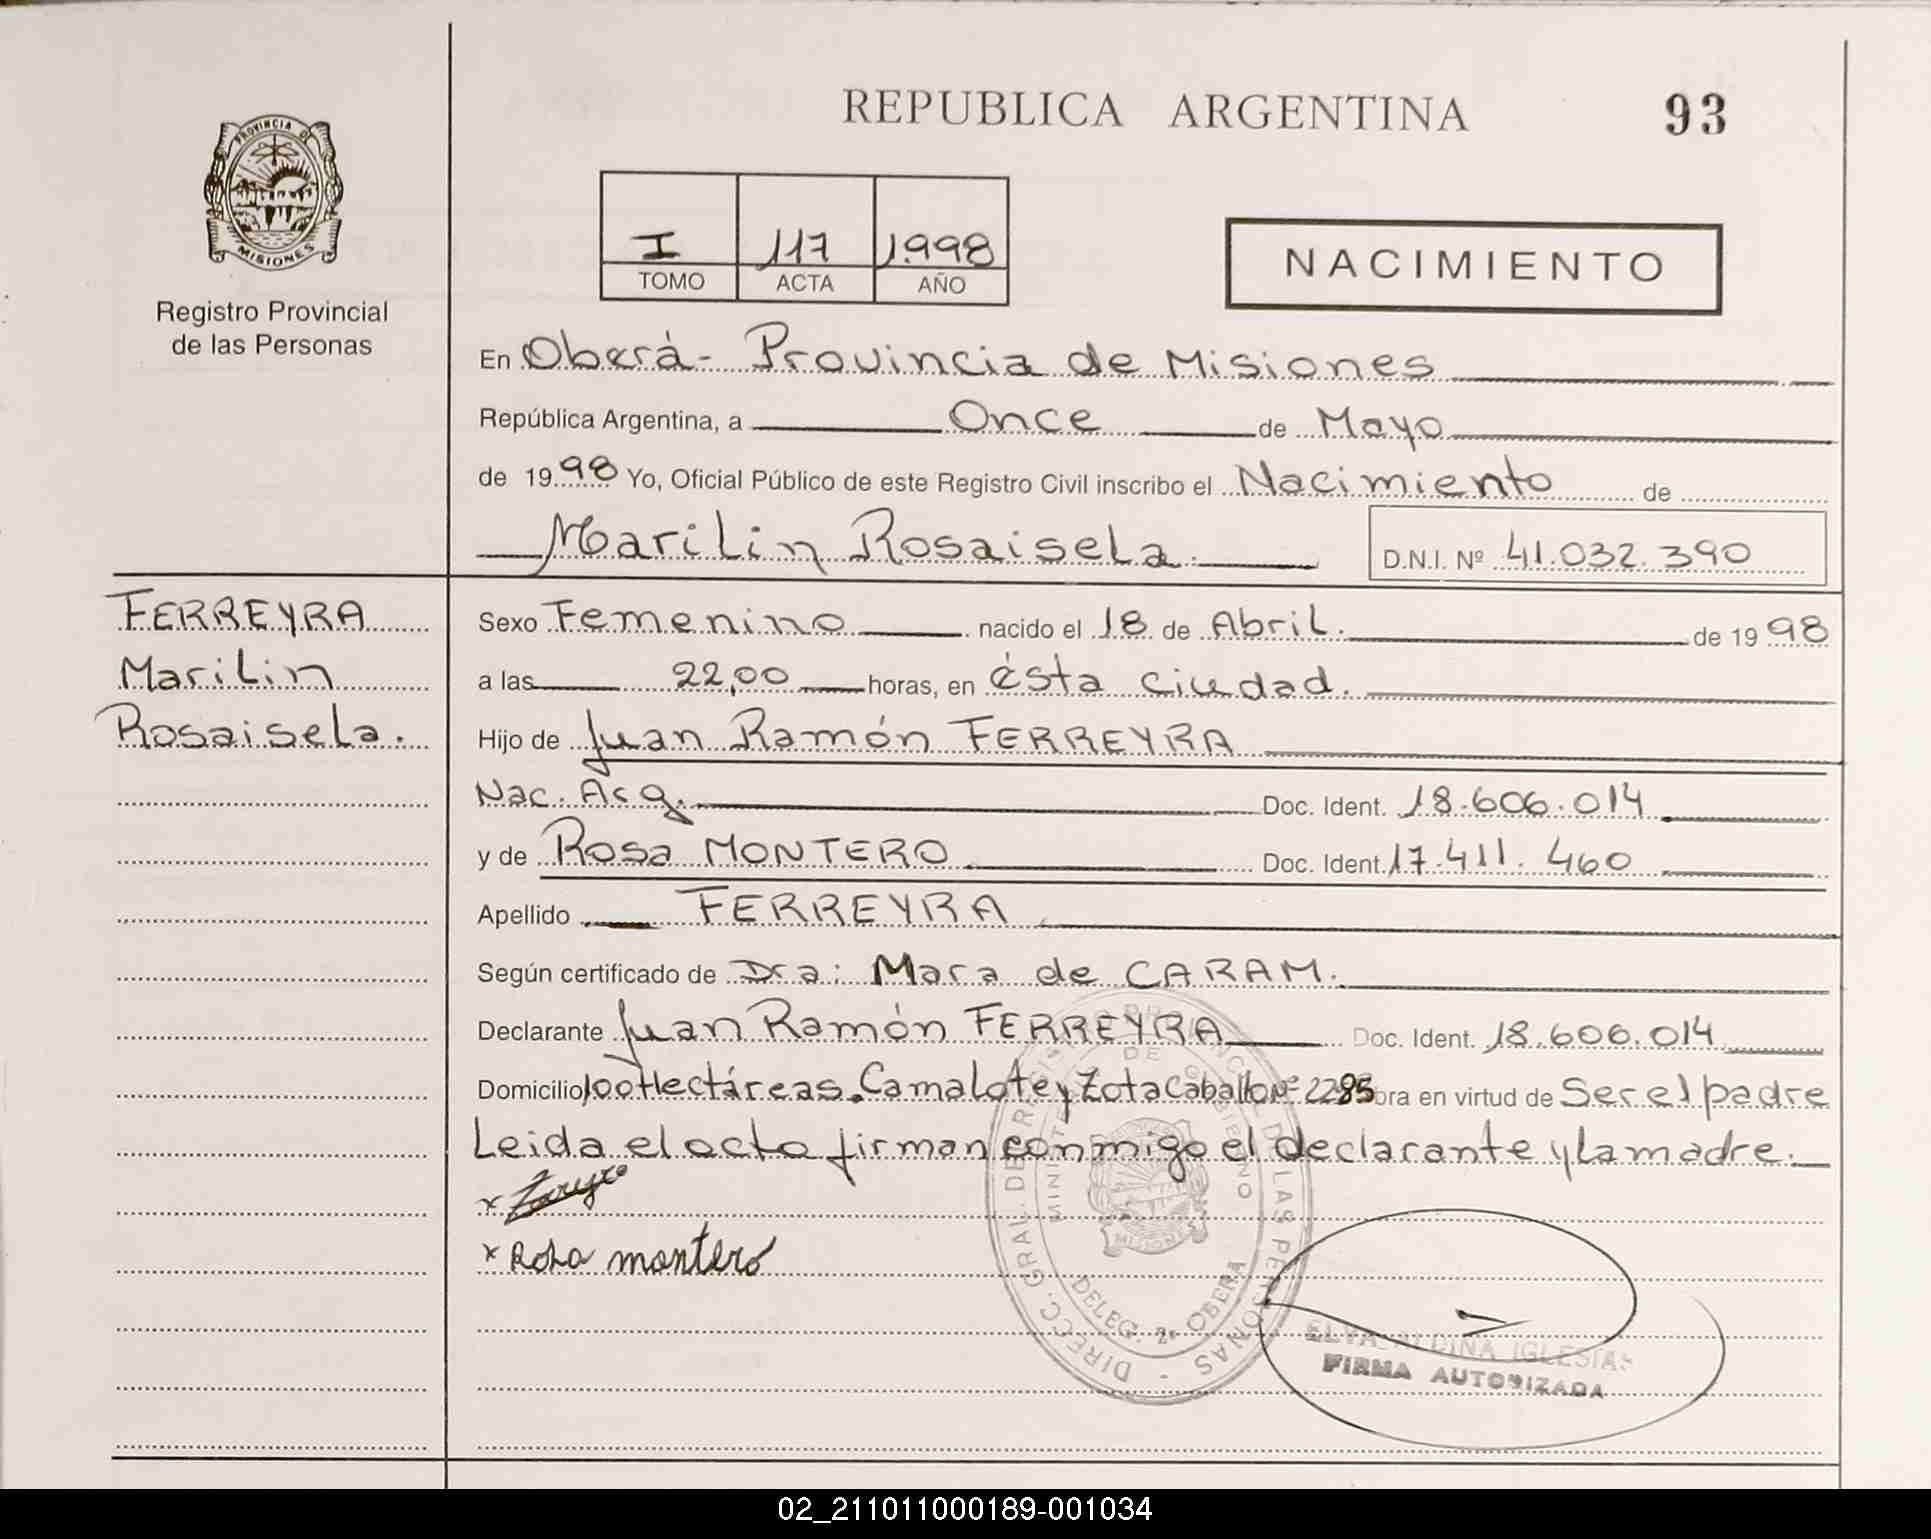 REPUBLICA ARGENTINA
93
PROVINCIA D
MISIONES
Registro Provincial
de las Personas
I 117 1.998
TOMO ACTA AÑO
NACIMIENTO
En Oberá - Provincia de Misiones
República Argentina, a Once de Mayo
de 1998 Yo, Oficial Público de este Registro Civil inscribo el Nacimiento de
Marilin Rosaisela.
D.N.I. Nº 41.032.390
FERREYRA
Marilin
Rosaisela.
Sexo Femenino nacido el 18 de Abril. de 1998
a las 22,00 horas, en ésta ciudad.
Hijo de Juan Ramón FERREYRA
Nac. Arg. Doc. Ident. 18.606.014
y de Rosa MONTERO Doc. Ident. 17.411.460
Apellido FERREYRA
Según certificado de Dra: Mara de CARAM.
Declarante Juan Ramón FERREYRA Doc. Ident. 18.606.014
Domicilio 100 Hectáreas. Camalote y Zota Caballo Nº 2285 bra en virtud de Ser el padre
Leida el acta firman conmigo el declarante y la madre.
x
x Rosa montero
DIRECC. GRAL. DE REGISTRO PROVINCIAL DE LAS PERSONAS
MINISTERIO DE GOBIERNO
MISIONES
DELEG. 2ª OBERA
IGLESIAS
FIRMA AUTORIZADA
02_211011000189-001034